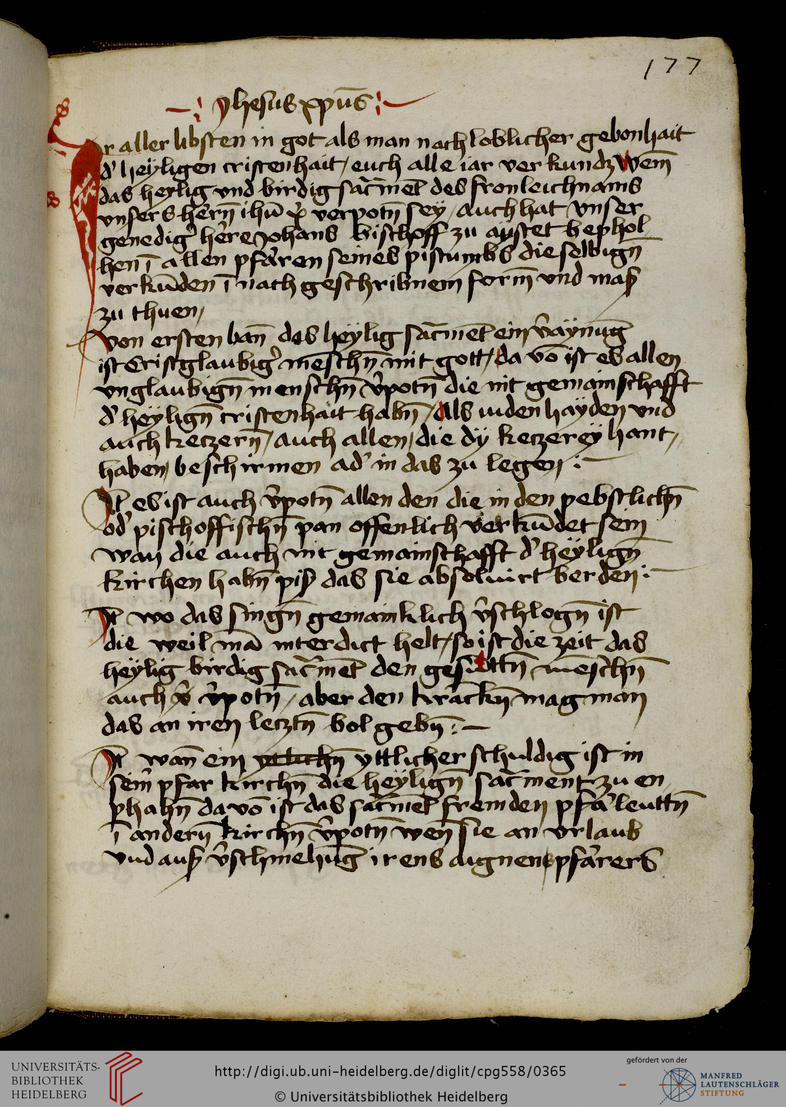 177
yhesus xpūs
Ir aller libsten in got als man nach loblicher gebonhait
d' heyligen cristenhait / euch alle iar verkundz wem
das heylig vnd birdig sacmēt des fronleichnams
vnsers hern̄ ihū xp̄ verpotn̄ sey / auch hat vnser
genedig' herre Johans bischoff zu aystet bephol
hen ī allen pfarren seines pistumbs die selbign̄
verkūden ī nach geschribnem form̄ vnd maß
zu thuen /
Von ersten ban̄ des heylig sacmēt ein v'aynūg
ist Cristglaubig' mēschn̄ mit gott / da vō ist es allen
vnglaubign̄ menschn̄ v'potn̄ die nit gemainschafft
d' heylign̄ cristenhait habn̄ / Als iuden hayden vnd
auch keczern̄ / auch allen / die dy keczerey hant /
haben / beschirmen ad' in das zu legen :
It es ist auch v'potn̄ allen den die in den pebstlichn̄
od' pischoffischn̄ pan offenlich verkūdet sein
wan die auch nit gemainschafft d' heylign̄
kirchen habn̄ piß das sie absoluirt berden :
It wo das singn̄ gemainklich v'schlogn̄ ist
die weil mā interdict helt / so ist die zeit das
heylig birdig sacmēt den gesūttn̄ meschn̄
auch v'potn̄ / aber den krāckn̄ mag man
das an iren lecztn̄ bol gebn̄ :
It wan̄ ein yttlicher schuldig ist in
seim̄ pfar kirchn̄ die heylign̄ sacment zu en
phahn̄ da vō ist das sacmēt fremden pfarleuttn̄
ī andern kirchn̄ v'potn̄ wen̄ sie an vrlaub
vnd auß v'schmehūg irens aignen pfarrers
UNIVERSITÄTS-
BIBLIOTHEK
HEIDELBERG
http://digi.ub.uni-heidelberg.de/diglit/cpg558/0365
© Universitätsbibliothek Heidelberg
gefördert von der
MANFRED
LAUTENSCHLÄGER
STIFTUNG